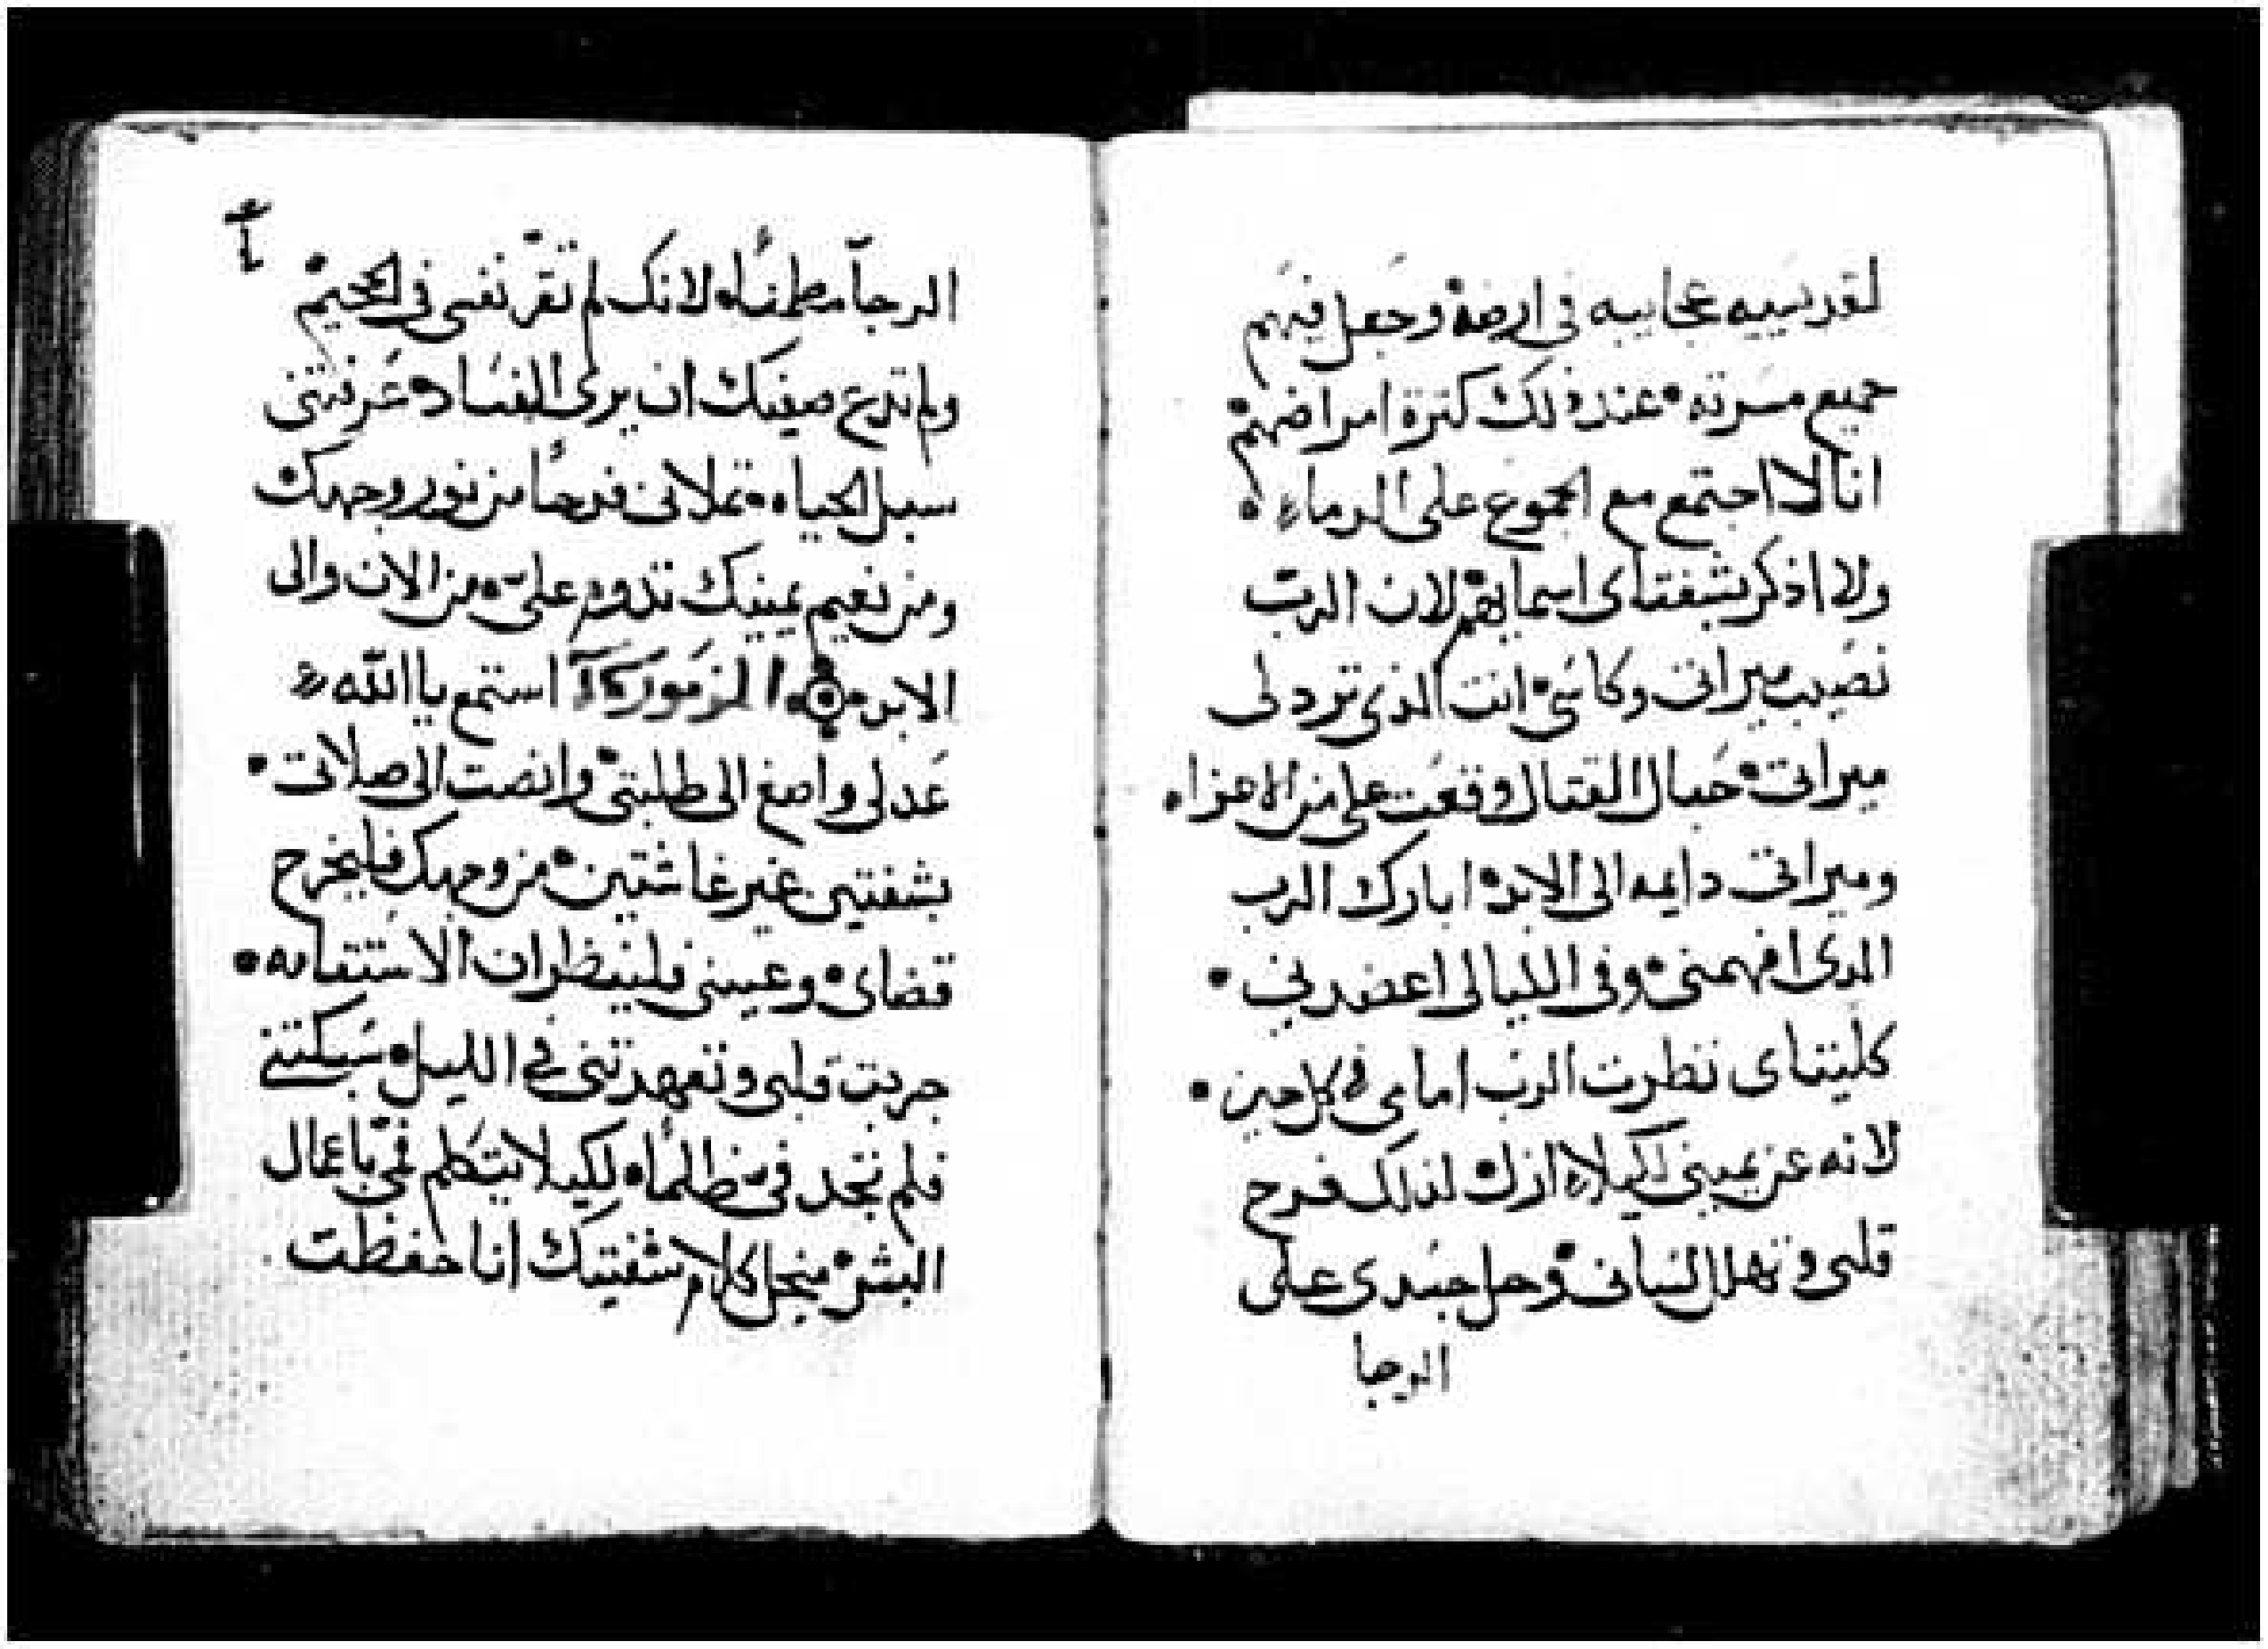 لقديسيه عجايبه في ارضه وجعل فيهم
جميع مسرته عند ذلك كثرة امراضهم
انا لا اجتمع مع الجموع على الدماء
ولا اذكر بشفتاى اسمايهم لان الرب
نصيب ميراثى وكاسى انت الذى ترد لى
ميراثى حبال القتال وقعت على من الاعزاء
وميراثى دايمه الى الابد ابارك الرب
الذى افهمنى وفى الليالى اعضدنى
كليتاى نظرت الرب امامى فى كل حين
لانه عن يمينى لكيلا ازل لذلك فرح
قلبى وتهلل لسانى وحل جسدى على
الرجا
الرجاء مطمئنا لانك لم تقر نفسى فى الجحيم
ولم تدع صفيك ان يرى الفساد عرفتنى
سبل الحياه تملانى فرحا من نور وجهك
ومن نعيم يمينك تدوم على من الان والى
الابد المزمور استمع يا الله
عدلى واصغ الى طلبتى وانصت الى صلاتى
بشفتين غير غاشتين من وجهك فليخرج
قضاى وعينى فلينظران الاستقامه
جربت قلبى وتعهدتنى فى الليل سبكتنى
فلم تجد فى ظلما لكيلا يتكلم فمى باعمال
البشر منجل كلام شفتيك انا حفظت